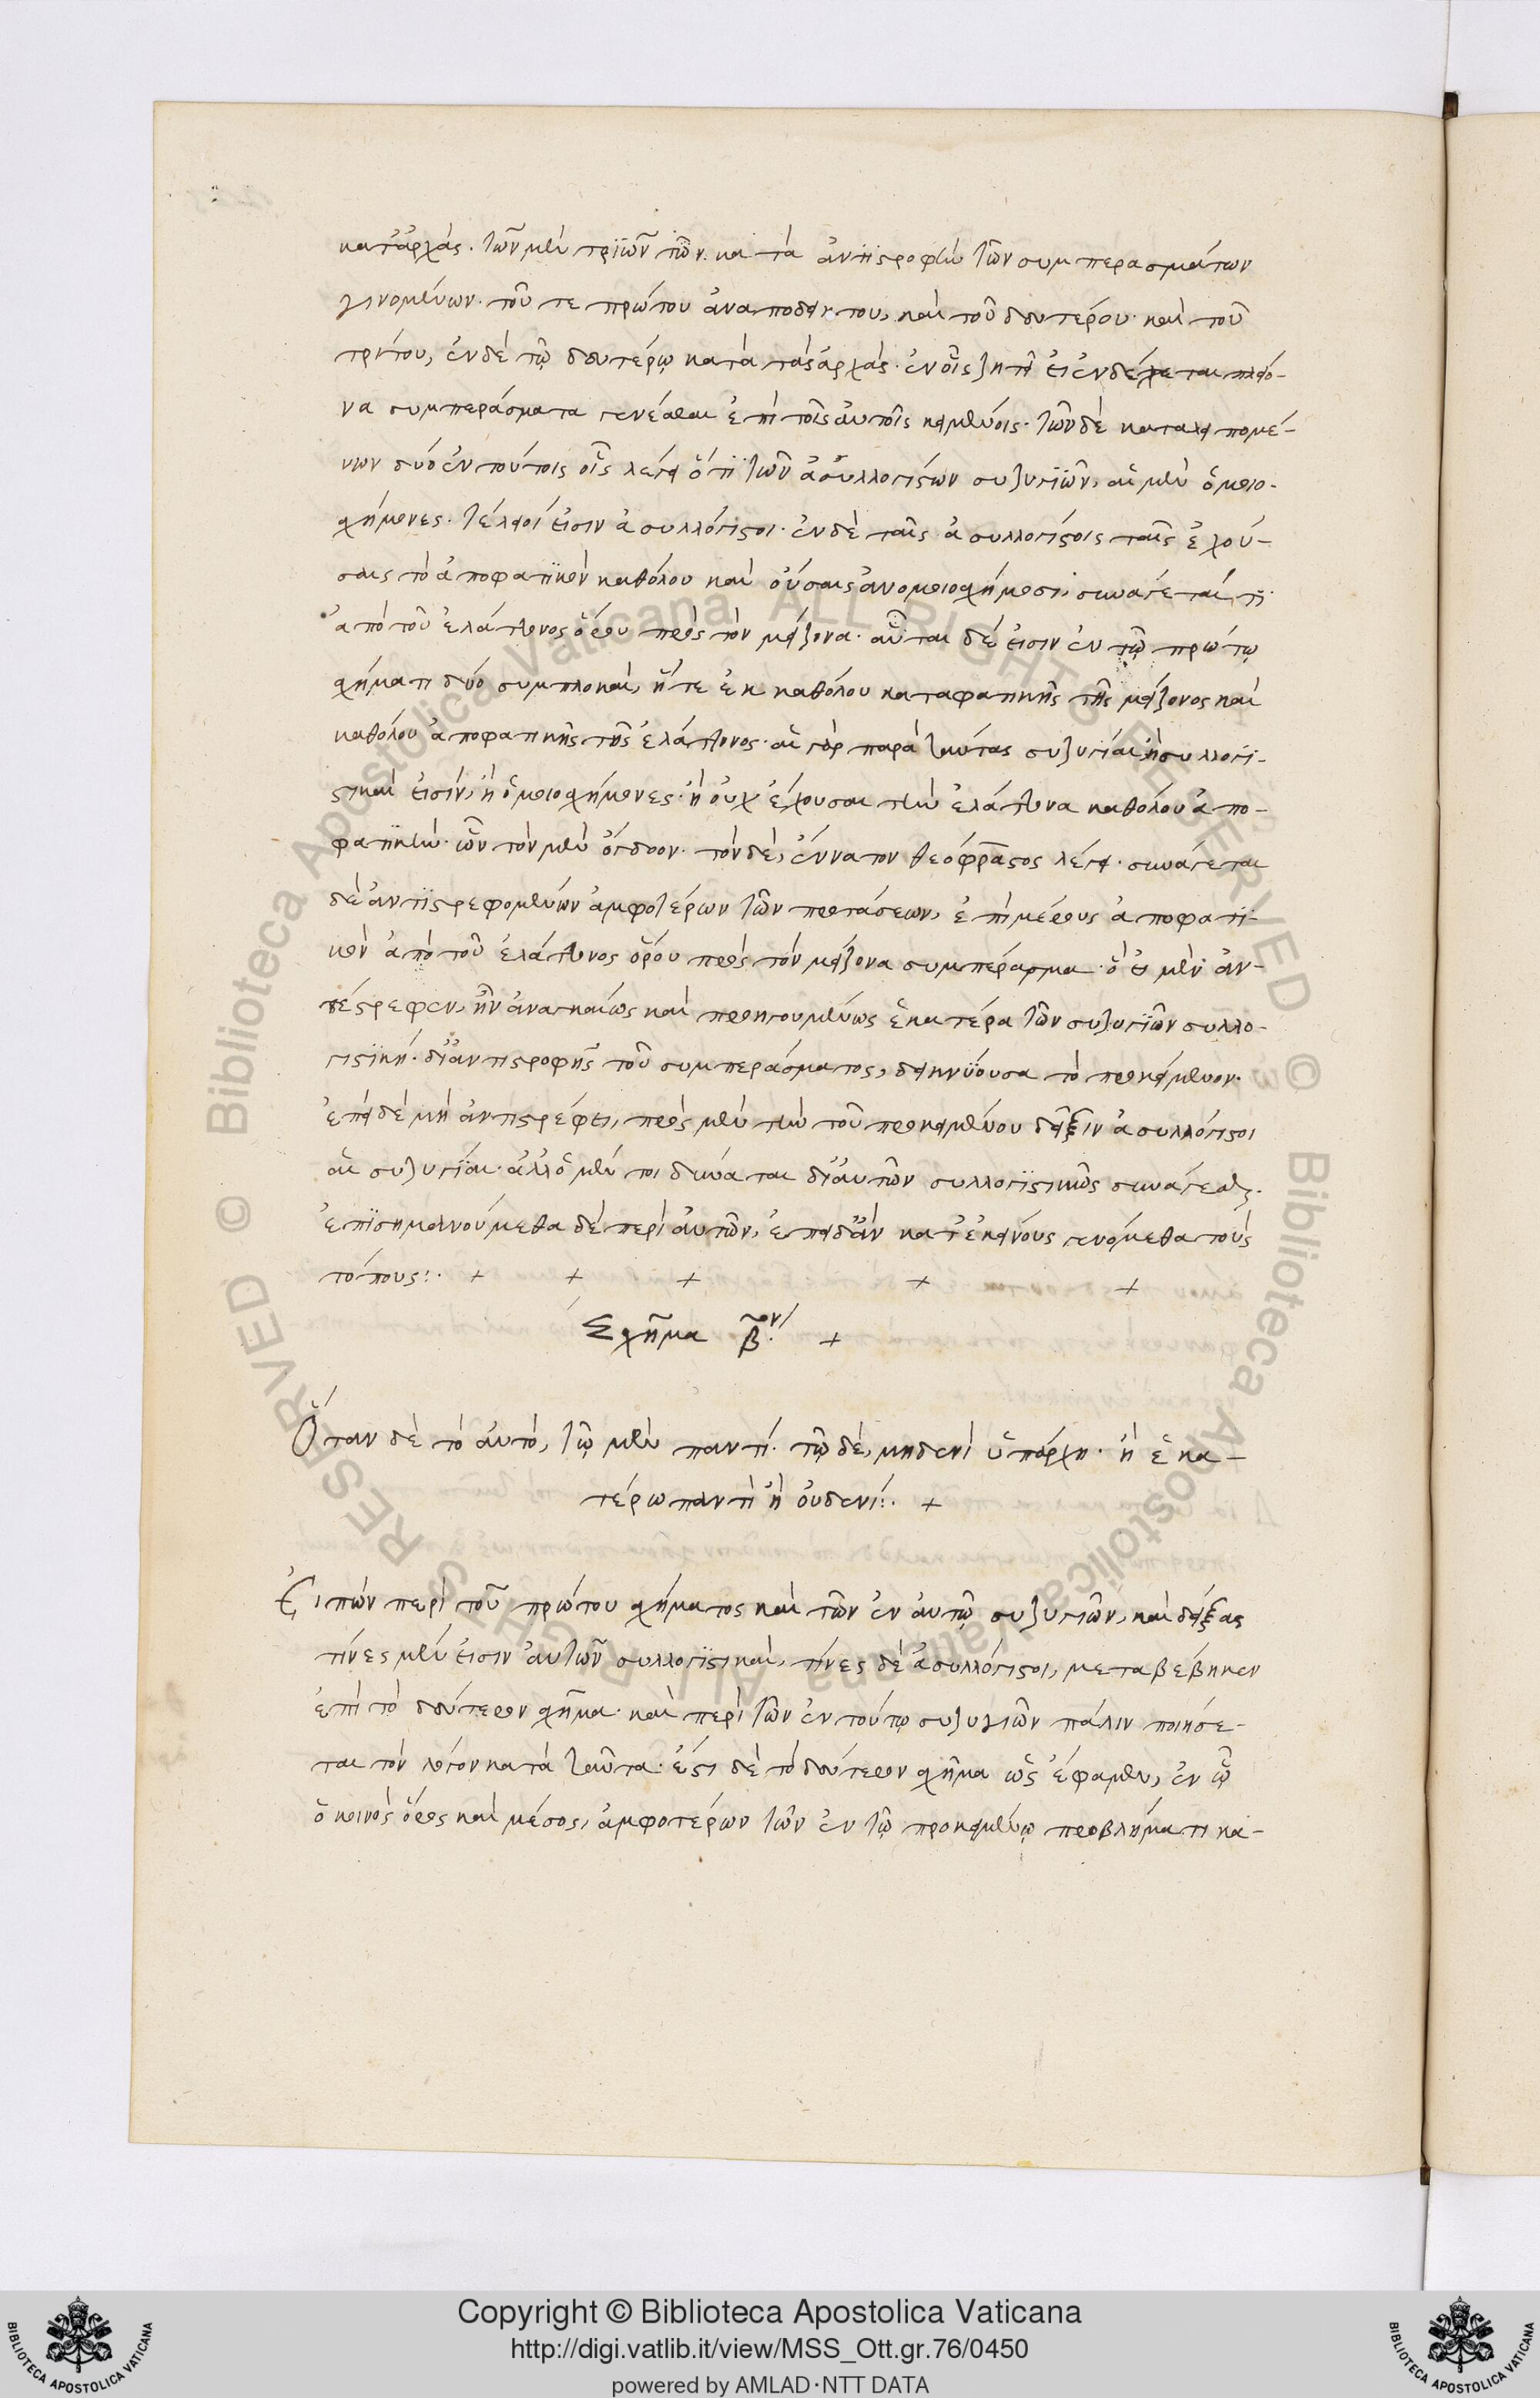 κατ' ἀρχάς. τῶν μὲν τριῶν τῶν κατὰ ἀντιστροφὴν τῶν συμπερασμάτων
γινομένων· τοῦ τε πρώτου ἀναποδείκτου, καὶ τοῦ δευτέρου· καὶ τοῦ
τρίτου, ἐν δὲ τῷ δευτέρῳ κατὰ τὰς ἀρχάς· ἐν οἷς ζητεῖ εἰ ἐνδέχεται πλείο-
να συμπεράσματα γενέσθαι ἐπὶ τοῖς αὐτοῖς κειμένοις· τῶν δὲ καταλειπομέ-
νων δύο ἐν τούτοις οἷς λέγει ὅτι τῶν ἀσυλλογίστων συζυγιῶν, αἱ μὲν ὁμοιο-
σχήμονες· τέλειοί εἰσιν ἀσυλλόγιστοι· ἐν δὲ ταῖς ἀσυλλογίστοις ταῖς ἐχού-
σαις τὸ ἀποφατικὸν καθόλου καὶ οὔσαις ἀνομοιοσχήμοσι, συνάγεταί τι
ἀπὸ τοῦ ἐλάττονος ὅρου πρὸς τὸν μείζονα· αὗται δέ εἰσιν ἐν τῷ πρώτῳ
σχήματι δύο συμπλοκαί, ἥ τε ἐκ καθόλου καταφατικῆς τῆς μείζονος καὶ
καθόλου ἀποφατικῆς τῆς ἐλάττονος· αἱ γὰρ παρὰ ταύτας συζυγίαι ἢ συλλογι-
στικαί εἰσιν, ἢ ὁμοιοσχήμονες· ἢ οὐχ ἔχουσαι τὴν ἐλάττονα καθόλου ἀπο-
φατικήν· ὧν τὸν μὲν ὄγδοον· τὸν δὲ, ἔννατον θεόφραστος λέγει· συνάγεται
δὲ ἀντιστρεφομένων ἀμφοτέρων τῶν προτάσεων, ἐπὶ μέρους ἀποφατι-
κὸν ἀπὸ τοῦ ἐλάττονος ὅρου πρὸς τὸν μείζονα συμπέρασμα· ὃ εἰ μὲν ἀν-
τέστρεφεν, ἦν ἀναγκαίως καὶ προηγουμένως ἑκατέρα τῶν συζυγιῶν συλλο-
γιστική· δι' ἀντιστροφῆς τοῦ συμπεράσματος, δεικνύουσα τὸ προκείμενον.
ἐπεὶ δὲ μὴ ἀντιστρέφει, πρὸς μὲν τὴν τοῦ προκειμένου δεῖξιν ἀσυλλόγιστοι
αἱ συζυγίαι· ἀλλ' ὃ μέν τοι δύναται δι' αὐτῶν συλλογιστικῶς συνάγεσθαι.
ἐπισημαινούμεθα δὲ περὶ αὐτῶν, ἐπειδὰν κατ' ἐκείνους γενόμεθα τοὺς
τόπους:. + + + + +
Σχῆμα β̃ον. +
Ὅταν δὲ τὸ αὐτό, τῷ μὲν παντί· τῷ δὲ, μηδενὶ ὑπάρχῃ· ἢ ἑκα-
τέρω παντὶ ἢ οὐδενί:. +
Εἰπὼν περὶ τοῦ πρώτου σχήματος καὶ τῶν ἐν αὐτῷ συζυγιῶν, καὶ δείξας
τίνες μέν εἰσιν αὐτῶν συλλογιστικαί, τίνες δὲ ἀσυλλόγιστοι, μεταβέβηκεν
ἐπὶ τὸ δεύτερον σχῆμα· καὶ περὶ τῶν ἐν τούτῳ συζυγιῶν πάλιν ποιήσε-
ται τὸν λόγον κατὰ ταῦτα· ἔστι δὲ τὸ δεύτερον σχῆμα ὡς ἔφαμεν, ἐν ᾧ
ὁ κοινὸς ὅρος καὶ μέσος, ἀμφοτέρων τῶν ἐν τῷ προκειμένῳ προβλήματι κα-
Copyright © Biblioteca Apostolica Vaticana
http://digi.vatlib.it/view/MSS_Ott.gr.76/0450
powered by AMLAD·NTT DATA
BIBLIOTECA APOSTOLICA VATICANA
BIBLIOTECA APOSTOLICA VATICANA
© Biblioteca Apostolica Vaticana ALL RIGHTS RESERVED
© Biblioteca Apostolica Vaticana ALL RIGHTS RESERVED